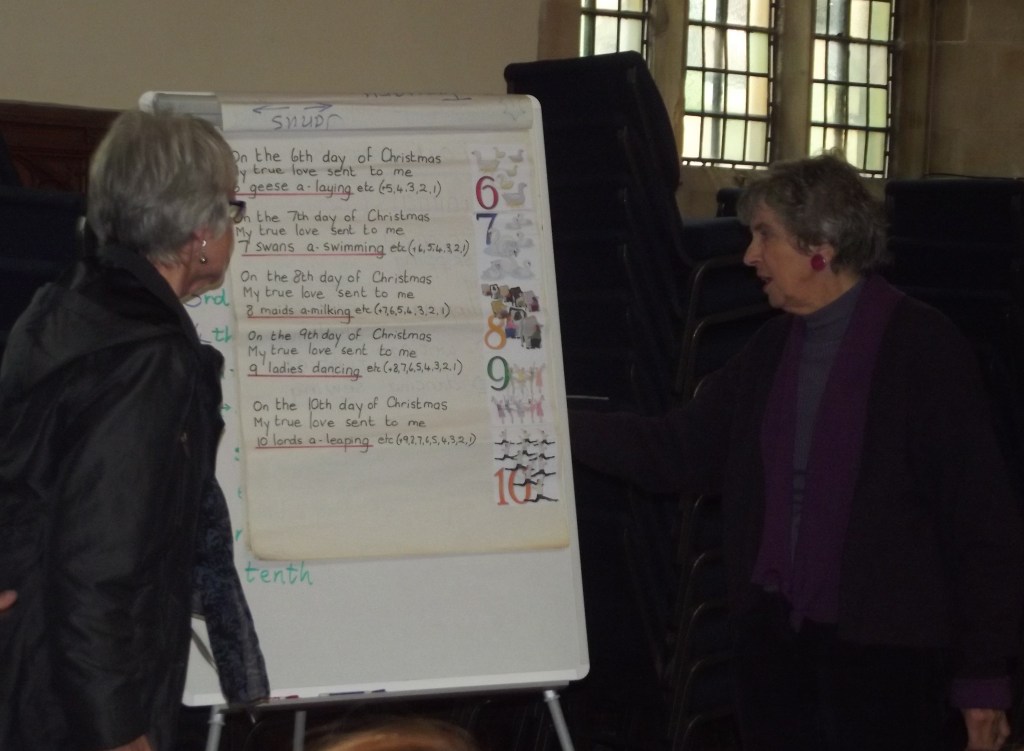 Janus
On the 6th day of Christmas
My true love sent to me
6 geese a-laying etc (+5,4,3,2,1)
6
On the 7th day of Christmas
My true love sent to me
7 swans a-swimming etc (+6,5,4,3,2,1)
7
On the 8th day of Christmas
My true love sent to me
8 maids a-milking etc (+7,6,5,4,3,2,1)
8
On the 9th day of Christmas
My true love sent to me
9 ladies dancing etc (+8,7,6,5,4,3,2,1)
9
On the 10th day of Christmas
My true love sent to me
10 lords a-leaping etc (+9,8,7,6,5,4,3,2,1)
10
3rd
th
tenth